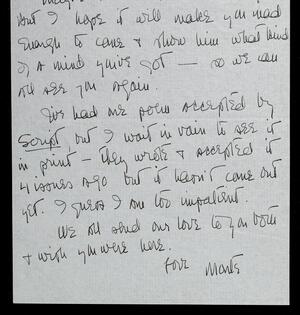 but I hope it will make you mad
enough to come & show him what kind
of a mind you've got — so we can
all see you again.
I've had one poem accepted by
Script, but I wait in vain to see it
in print — they wrote & accepted it
4 issues ago but it hasn't come out
yet. I guess I am too impatient.
We all send our love to you both
& wish you were here.
Love